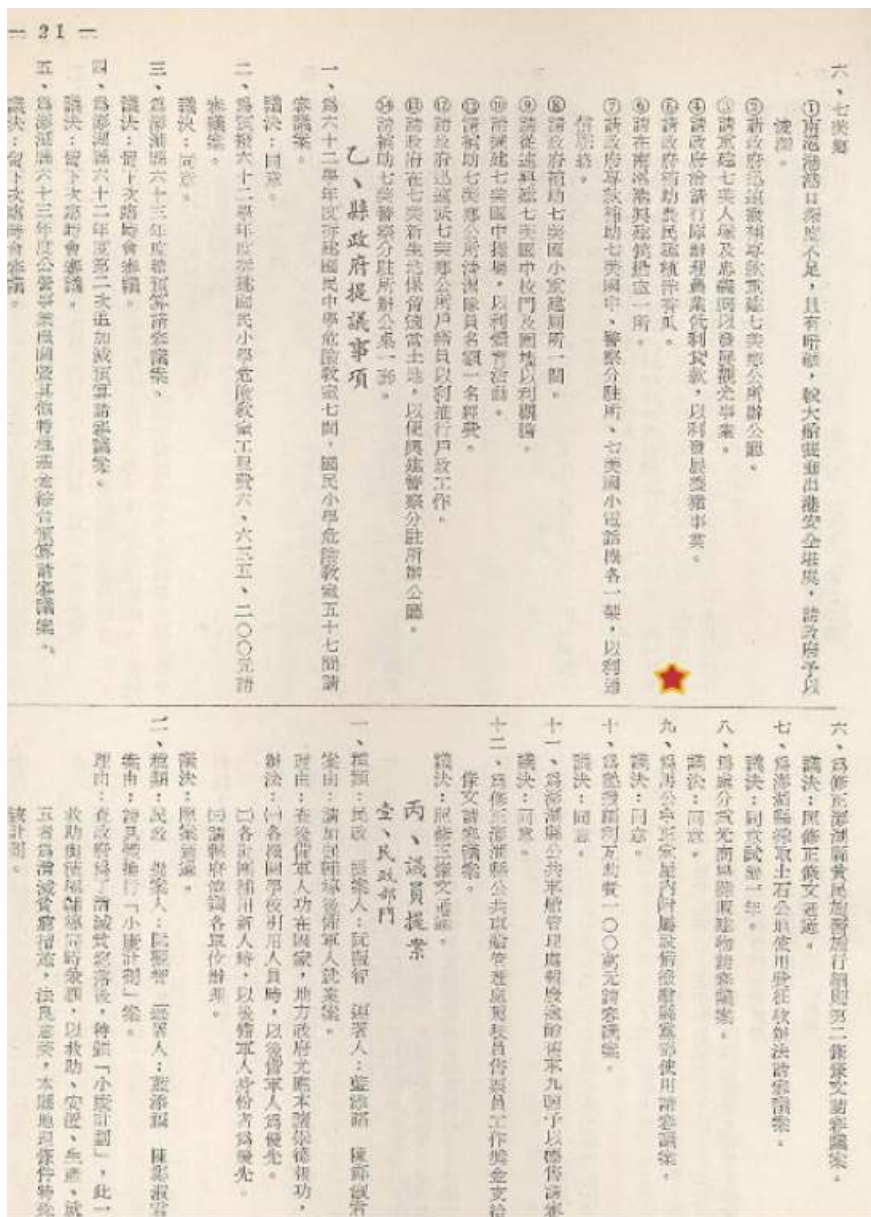 — 21 —
六、七美鄉
①南滬港港口深度不足，且有暗礁，較大船隻進出港安全堪虞，請政府予以
浚深。
②請政府迅速撥補專款重建七美鄉公所辦公廳。
③請重建七美人塚及忠義祠以發展觀光事業。
④請政府洽請行庫辦理農業低利貸款，以利發展養豬事業。
⑤請政府補助農民種植洋香瓜。
⑥請在南滬港興建候船室一所。
⑦請政府專款補助七美國中、警察分駐所、七美國小電話機各一架，以利通
信連絡。
⑧請政府補助七美國小重建廁所一間。
⑨請從速興建七美國中校門及圍牆以利觀瞻。
⑩請擴建七美國中操場，以利體育活動。
請補助七美鄉公所清潔隊員名額一名經費。
⑫請政府迅速派七美鄉公所戶籍員以利推行戶政工作。
⑬請政府在七美新生地保留適當土地，以便興建警察分駐所辦公廳。
⑭請補助七美警察分駐所辦公桌一
乙、縣政府提議事項
一、為六十二學年度拆建國民中學危險教室七間，國民小學危險教室五十七間請
審議案。
議決：同意。
二、為 六十二學年度拆建國民小學危險教室工程費六、六三五、二〇〇元請
審議案。
議決：同意。
三、為澎湖縣六十三年度總預算請審議案。
議決：留下次臨時會審議。
四、為澎湖縣六十二年度第二次追加減預算請審議案。
議決：留下次臨時會審議。
五、為澎湖縣六十三年度公營事業機關暨其他特種基金綜合預算請審議案。
議決：留下次臨時會審議。
六、為修正澎湖縣 民施醫施行細則第二條條文請審議案。
議決：照修正條文通過。
七、為澎湖縣採取土石公地使用費征收辦法請審議案。
議決：同意試辦一年。
八、為處分重光商 建物請審議案。
議決：同意。
九、為馬公中正堂屋內附屬設備 縣黨部使用請審議案。
議決：同意。
十、為 福利互助費一〇〇萬元請審議案。
議決：同意。
十一、為澎湖縣公共車船管理處報廢 車九輛予以標售請審
議決：同意。
十二、為修正澎湖縣公共車船管理處駕駛員售票員工作獎金支給
條文請審議案。
議決：照修正條文通過。
丙、議員提案
壹、民政部門
一、種類：民政 提案人：阮 智 連署人：藍添福 陳鄭淑
案由：請加強輔導後備軍人就業案。
理由：在後備軍人功在國家，地方政府尤應本諸崇德報功，
辦法：㈠各機關學校引用人員時，以後備軍人為優先。
㈡各計劃補用新人時，以後備軍人身份者為優先。
㈢請縣府協調各單位辦理。
議決：照案通過。
二、種類：民政 提案人：阮 智 連署人：藍添福 陳鄭淑
案由：請 推行「小康計劃」案。
理由：查政府為了消滅貧窮落後，特頒「小康計劃」，此一
救助與 輔導同時兼顧，以救助、安置、生產、就
五者為消滅貧窮措施，法良意美，本縣地理條件特
該計劃。